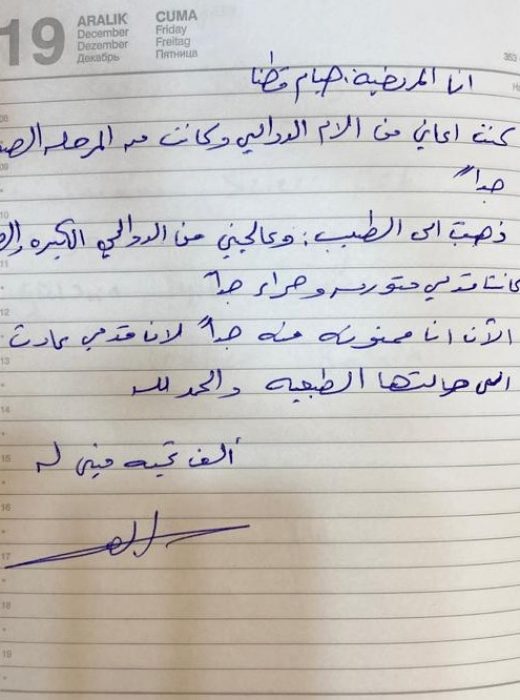 19
ARALIK CUMA
December Friday
Dezember Freitag
Декабрь Пятница
353
انا المريضة، صيام قطنا
كنت اعاني من الام الدوالي وكانت من المرحله
جداً
ذهبت الى الطبيب: وعالجني من الدوالي الكبيره
كانت قدمي متورمه وحمراء جداً
الآن انا ممنونه منه جداً لان قدمي عادت
الى حالتها الطبعيه والحمد لله
ألف تحيه مني له
08
09
10
11
12
13
14
15
16
17
18
19